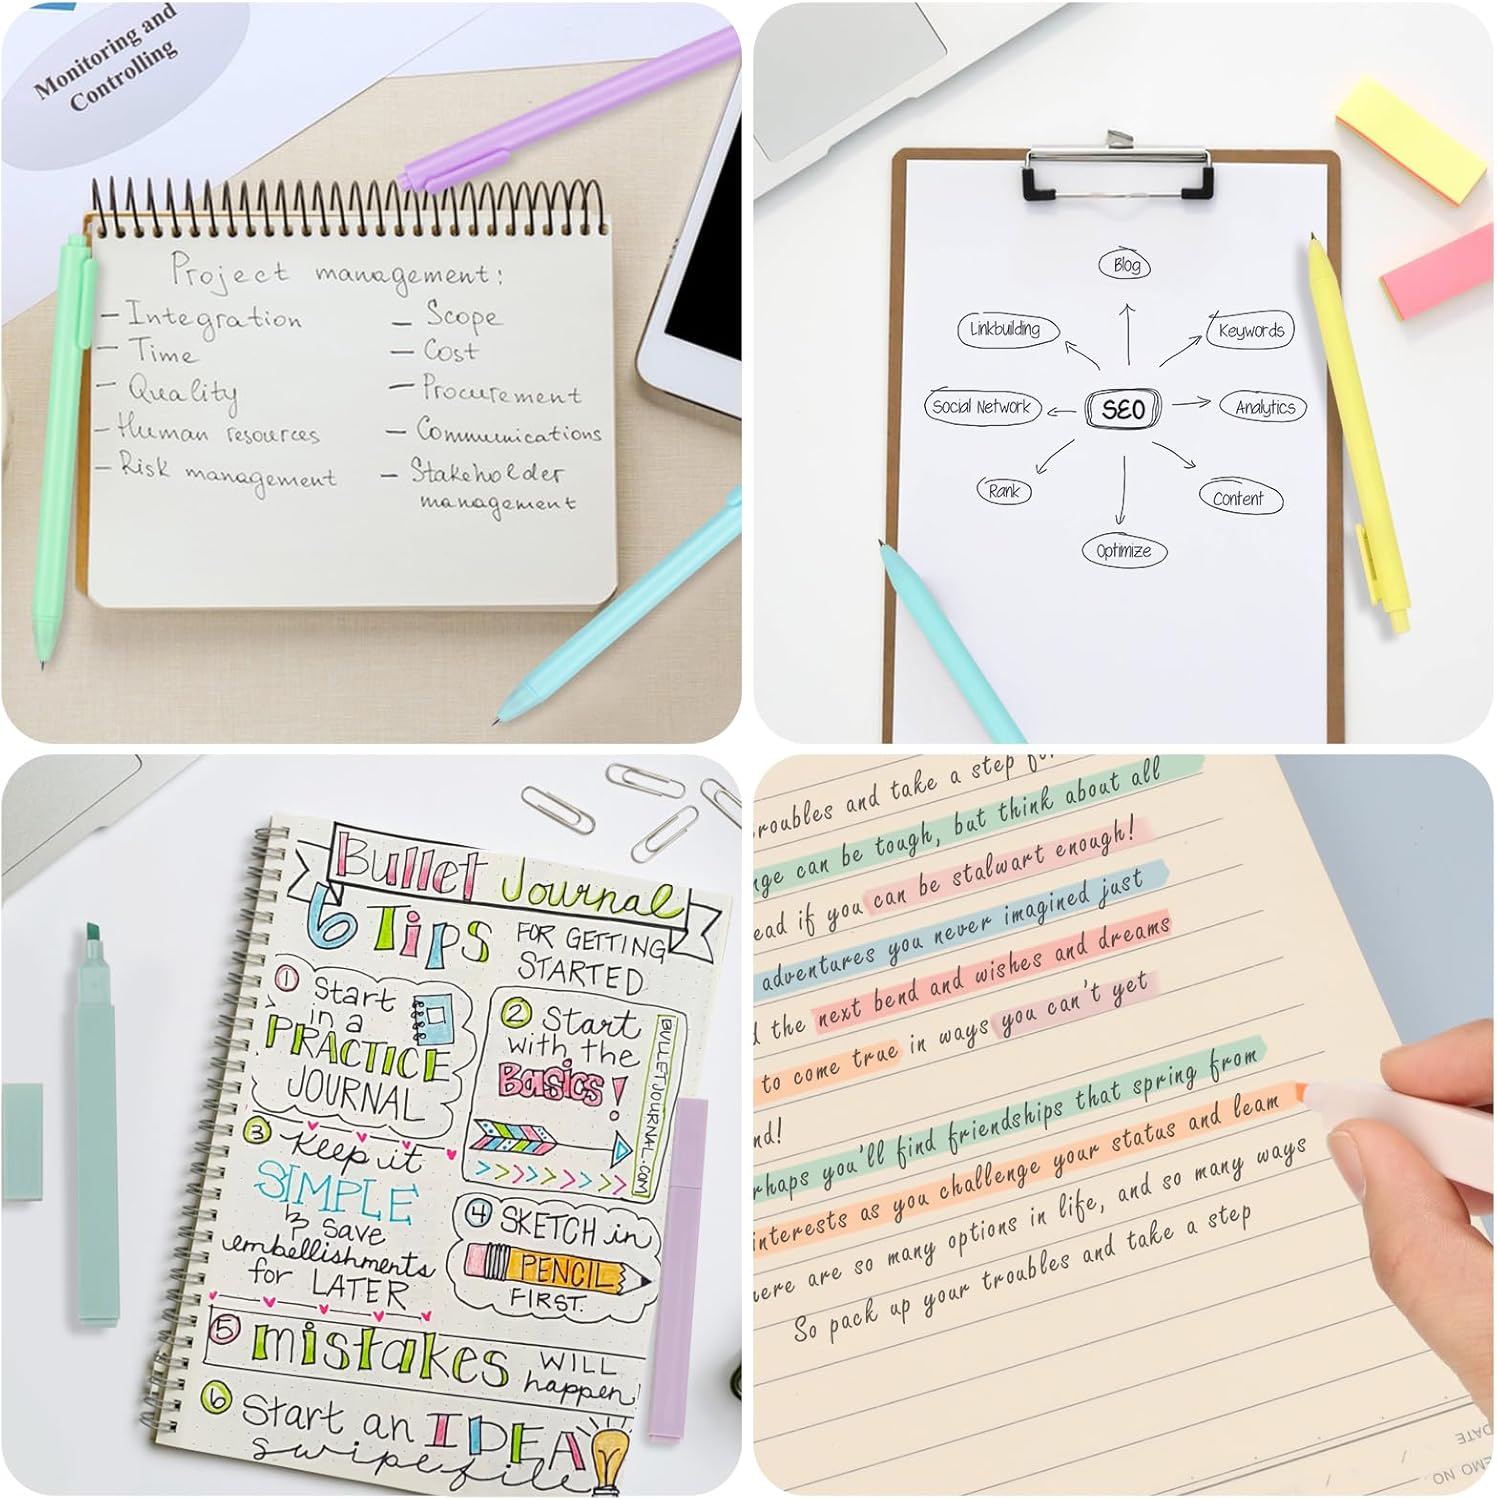 Monitoring and
Controlling
Project management:
– Integration
– Time
– Quality
– Human resources
– Risk management
– Scope
– Cost
– Procurement
– Communications
– Stakeholder
management
Blog
Linkbuilding
Keywords
Social Network
SEO
Analytics
Rank
Content
Optimize
Bullet Journal
6 Tips FOR GETTING
STARTED
1 Start
in a
PRACTICE
JOURNAL
2 Start
with the
Basics!
BULLETJOURNAL.COM
3 Keep it
SIMPLE
& save
embellishments
for LATER
4 SKETCH in
PENCIL
FIRST.
5 mistakes WILL
happen
6 Start an IDEA
swipefile
troubles and take a step
nge can be tough, but think about all
ead if you can be stalwart enough!
adventures you never imagined just
d the next bend and wishes and dreams
to come true in ways you can't yet
nd!
rhaps you'll find friendships that spring from
interests as you challenge your status and leam
here are so many options in life, and so many ways
So pack up your troubles and take a step
DATE
EMO NO